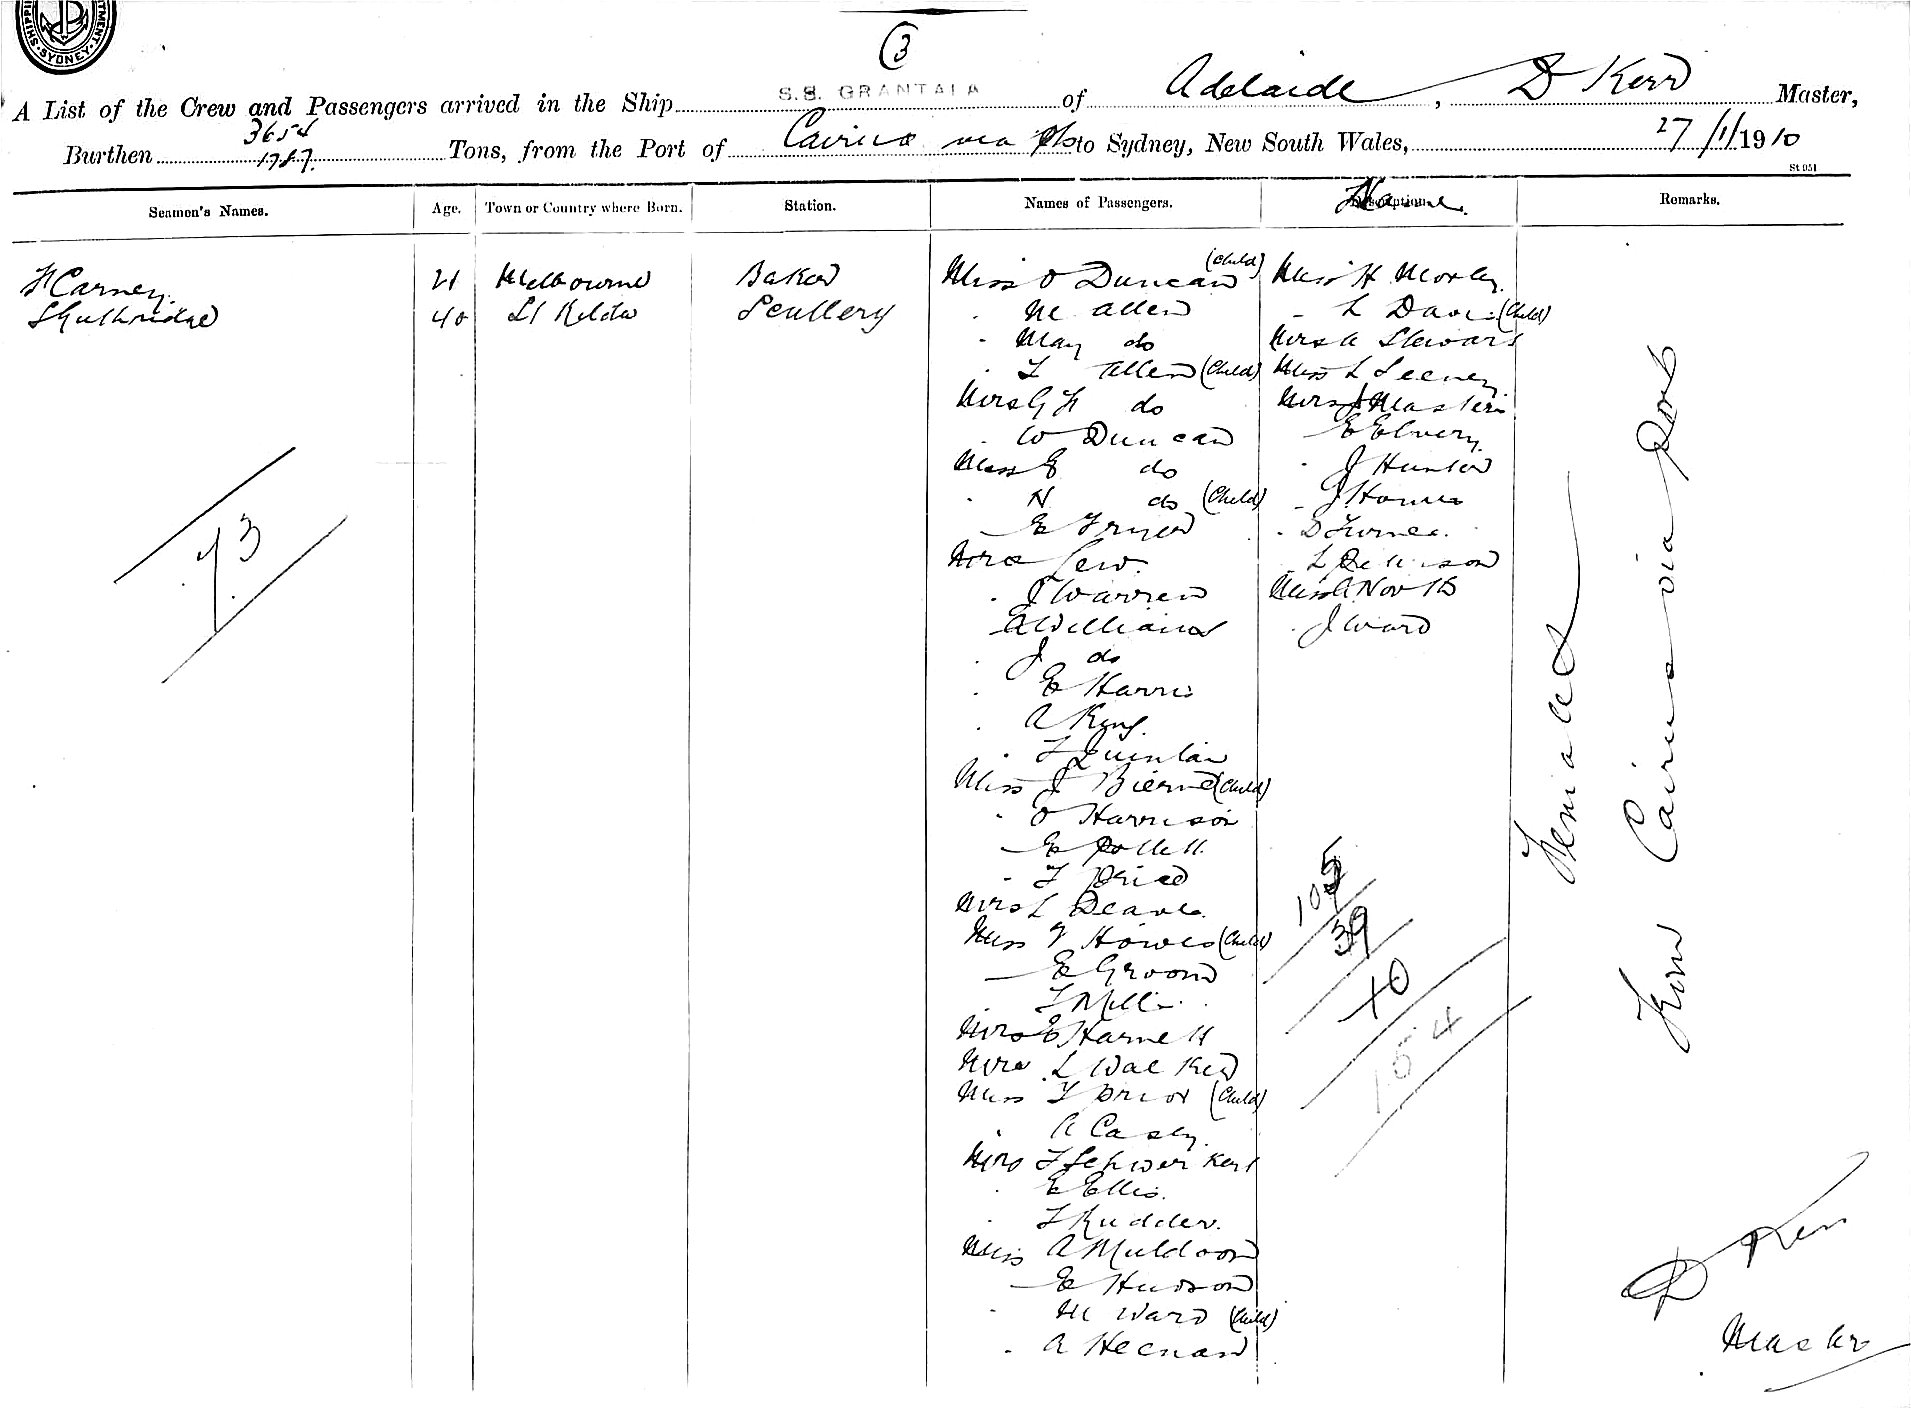 SHIPPING
DEPARTMENT
SYDNEY
3
A List of the Crew and Passengers arrived in the Ship S.S. GRANTALA of Adelaide, D Kerr Master,
Burthen 3654 1787 Tons, from the Port of Cairns via Pts to Sydney, New South Wales, 27/1/1910
St 051
Seamen's Names. Age. Town or Country where Born. Station. Names of Passengers. Name. Remarks.
F Carney 21 Melbourne Baker Miss O Duncan (Child) Miss H Morley
40 St Kilda Scullery M Allen L Davis (Child)
May do Mrs A Stewart
T Allen (Child) Miss L Leeney
Mrs G F do Mrs J Masters
W Duncan E Elvery
Miss E do J Hunter
N do (Child) J Homes
E Fryer D
Mrs Lew. L
J Warren Miss A North
A Williams J Ward
J do
E Harris
A King
T Quinlan
Miss J Bierne (Child)
O Harrison
E Pollett
T Price
Mrs L Deave
Miss V Howes (Child)
E Groom
T Mills
Mrs E Harnett
Mrs L Walker
Miss T Prior (Child)
A Casey
Mrs T Schweikert
E Ellis.
T Rudder.
Miss A Muldoon
E Hudson
M Ward (Child)
A Heenan
73
105
39
10
154
Female
From Cairns via Ports
D Kerr
Master